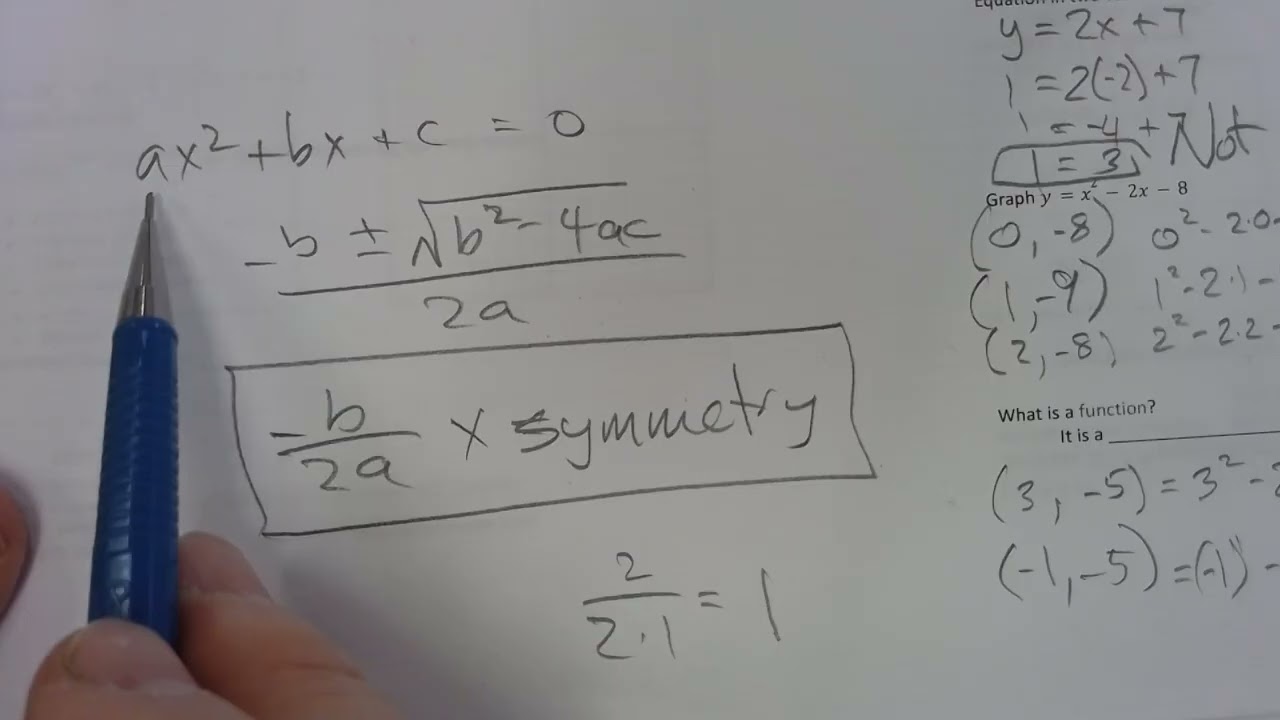 ax² + bx + c = 0
-b ± √b² - 4ac
2a
-b
2a
x symmetry
2
2·1
= 1
y = 2x + 7
1 = 2(-2) + 7
1 = -4 +
1 = 3
Not
Graph y = x² - 2x - 8
(0, -8) 0² - 2·0-
(1, -9) 1² - 2·1 -
(2, -8) 2² - 2·2 -
What is a function?
It is a
(3, -5) = 3² -
(-1, -5) = (-1) -